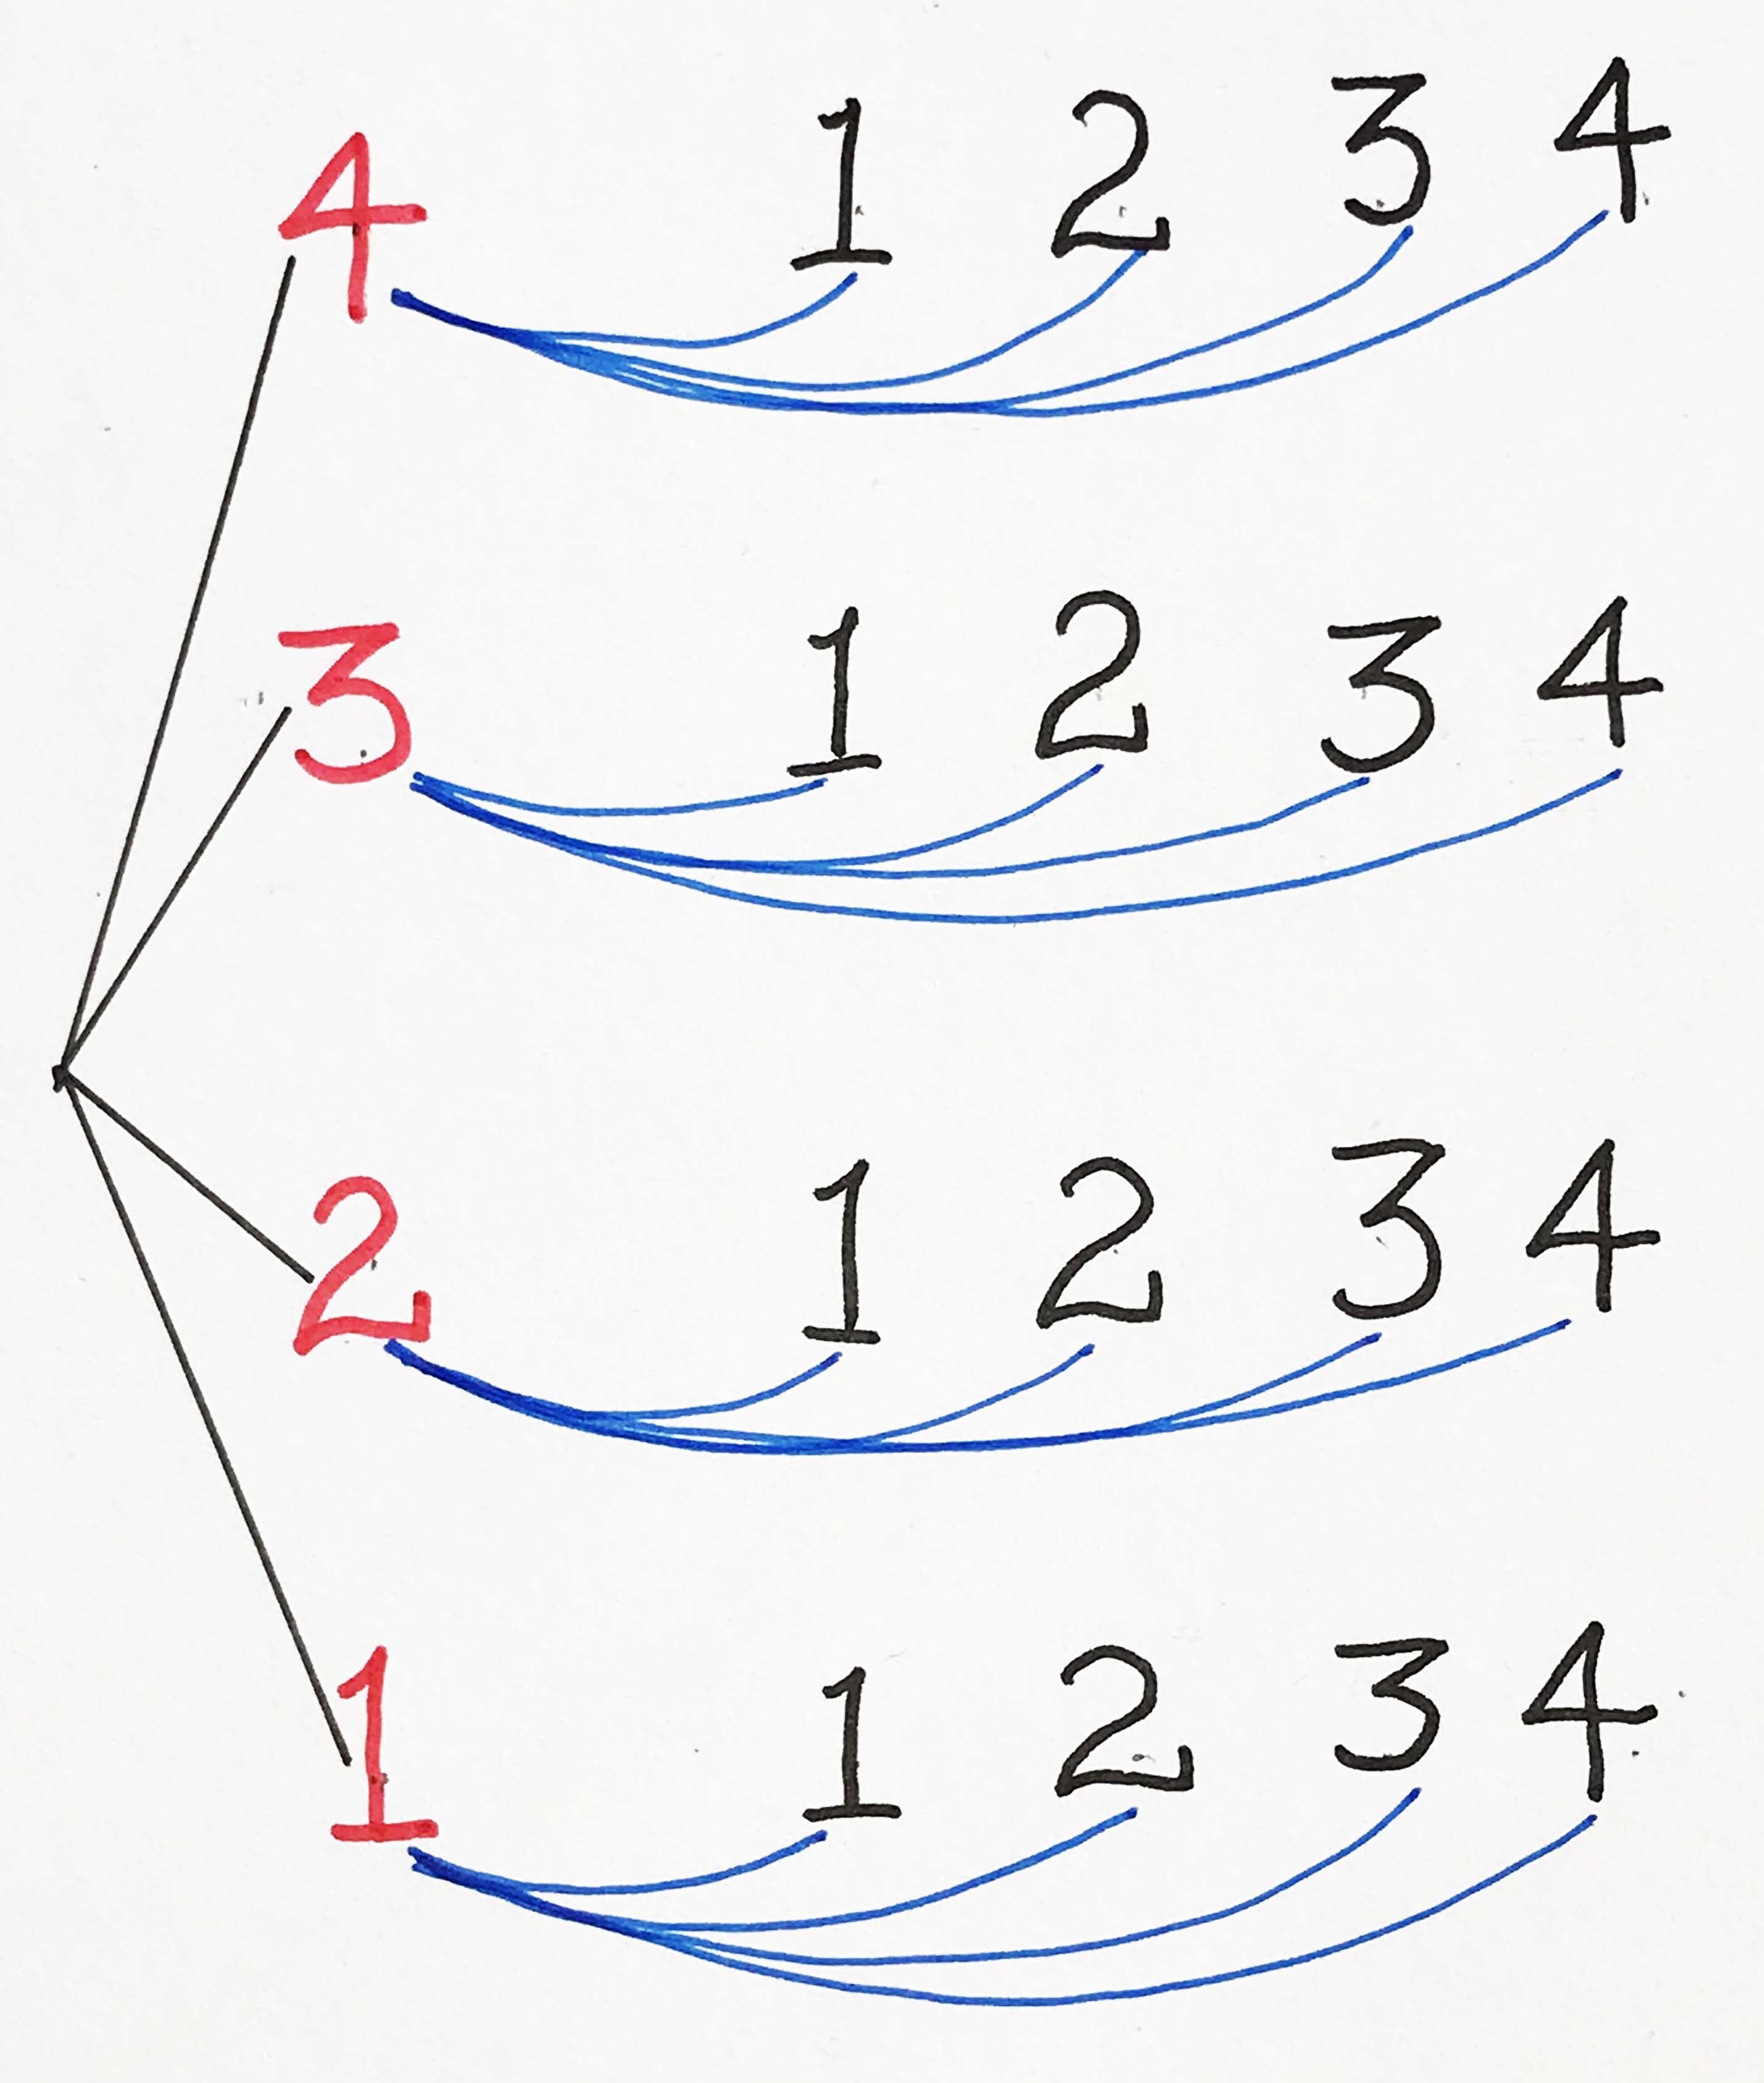 4 1 2 3 4
3 1 2 3 4
2 1 2 3 4
1 1 2 3 4